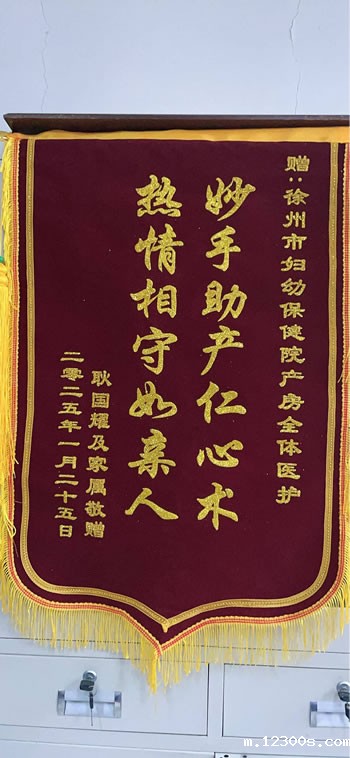 赠：徐州市妇幼保健院产房全体医护
妙手助产仁心术
热情相守如亲人
耿国耀及家属敬赠
二零二五年一月二十五日
m.12300s.com